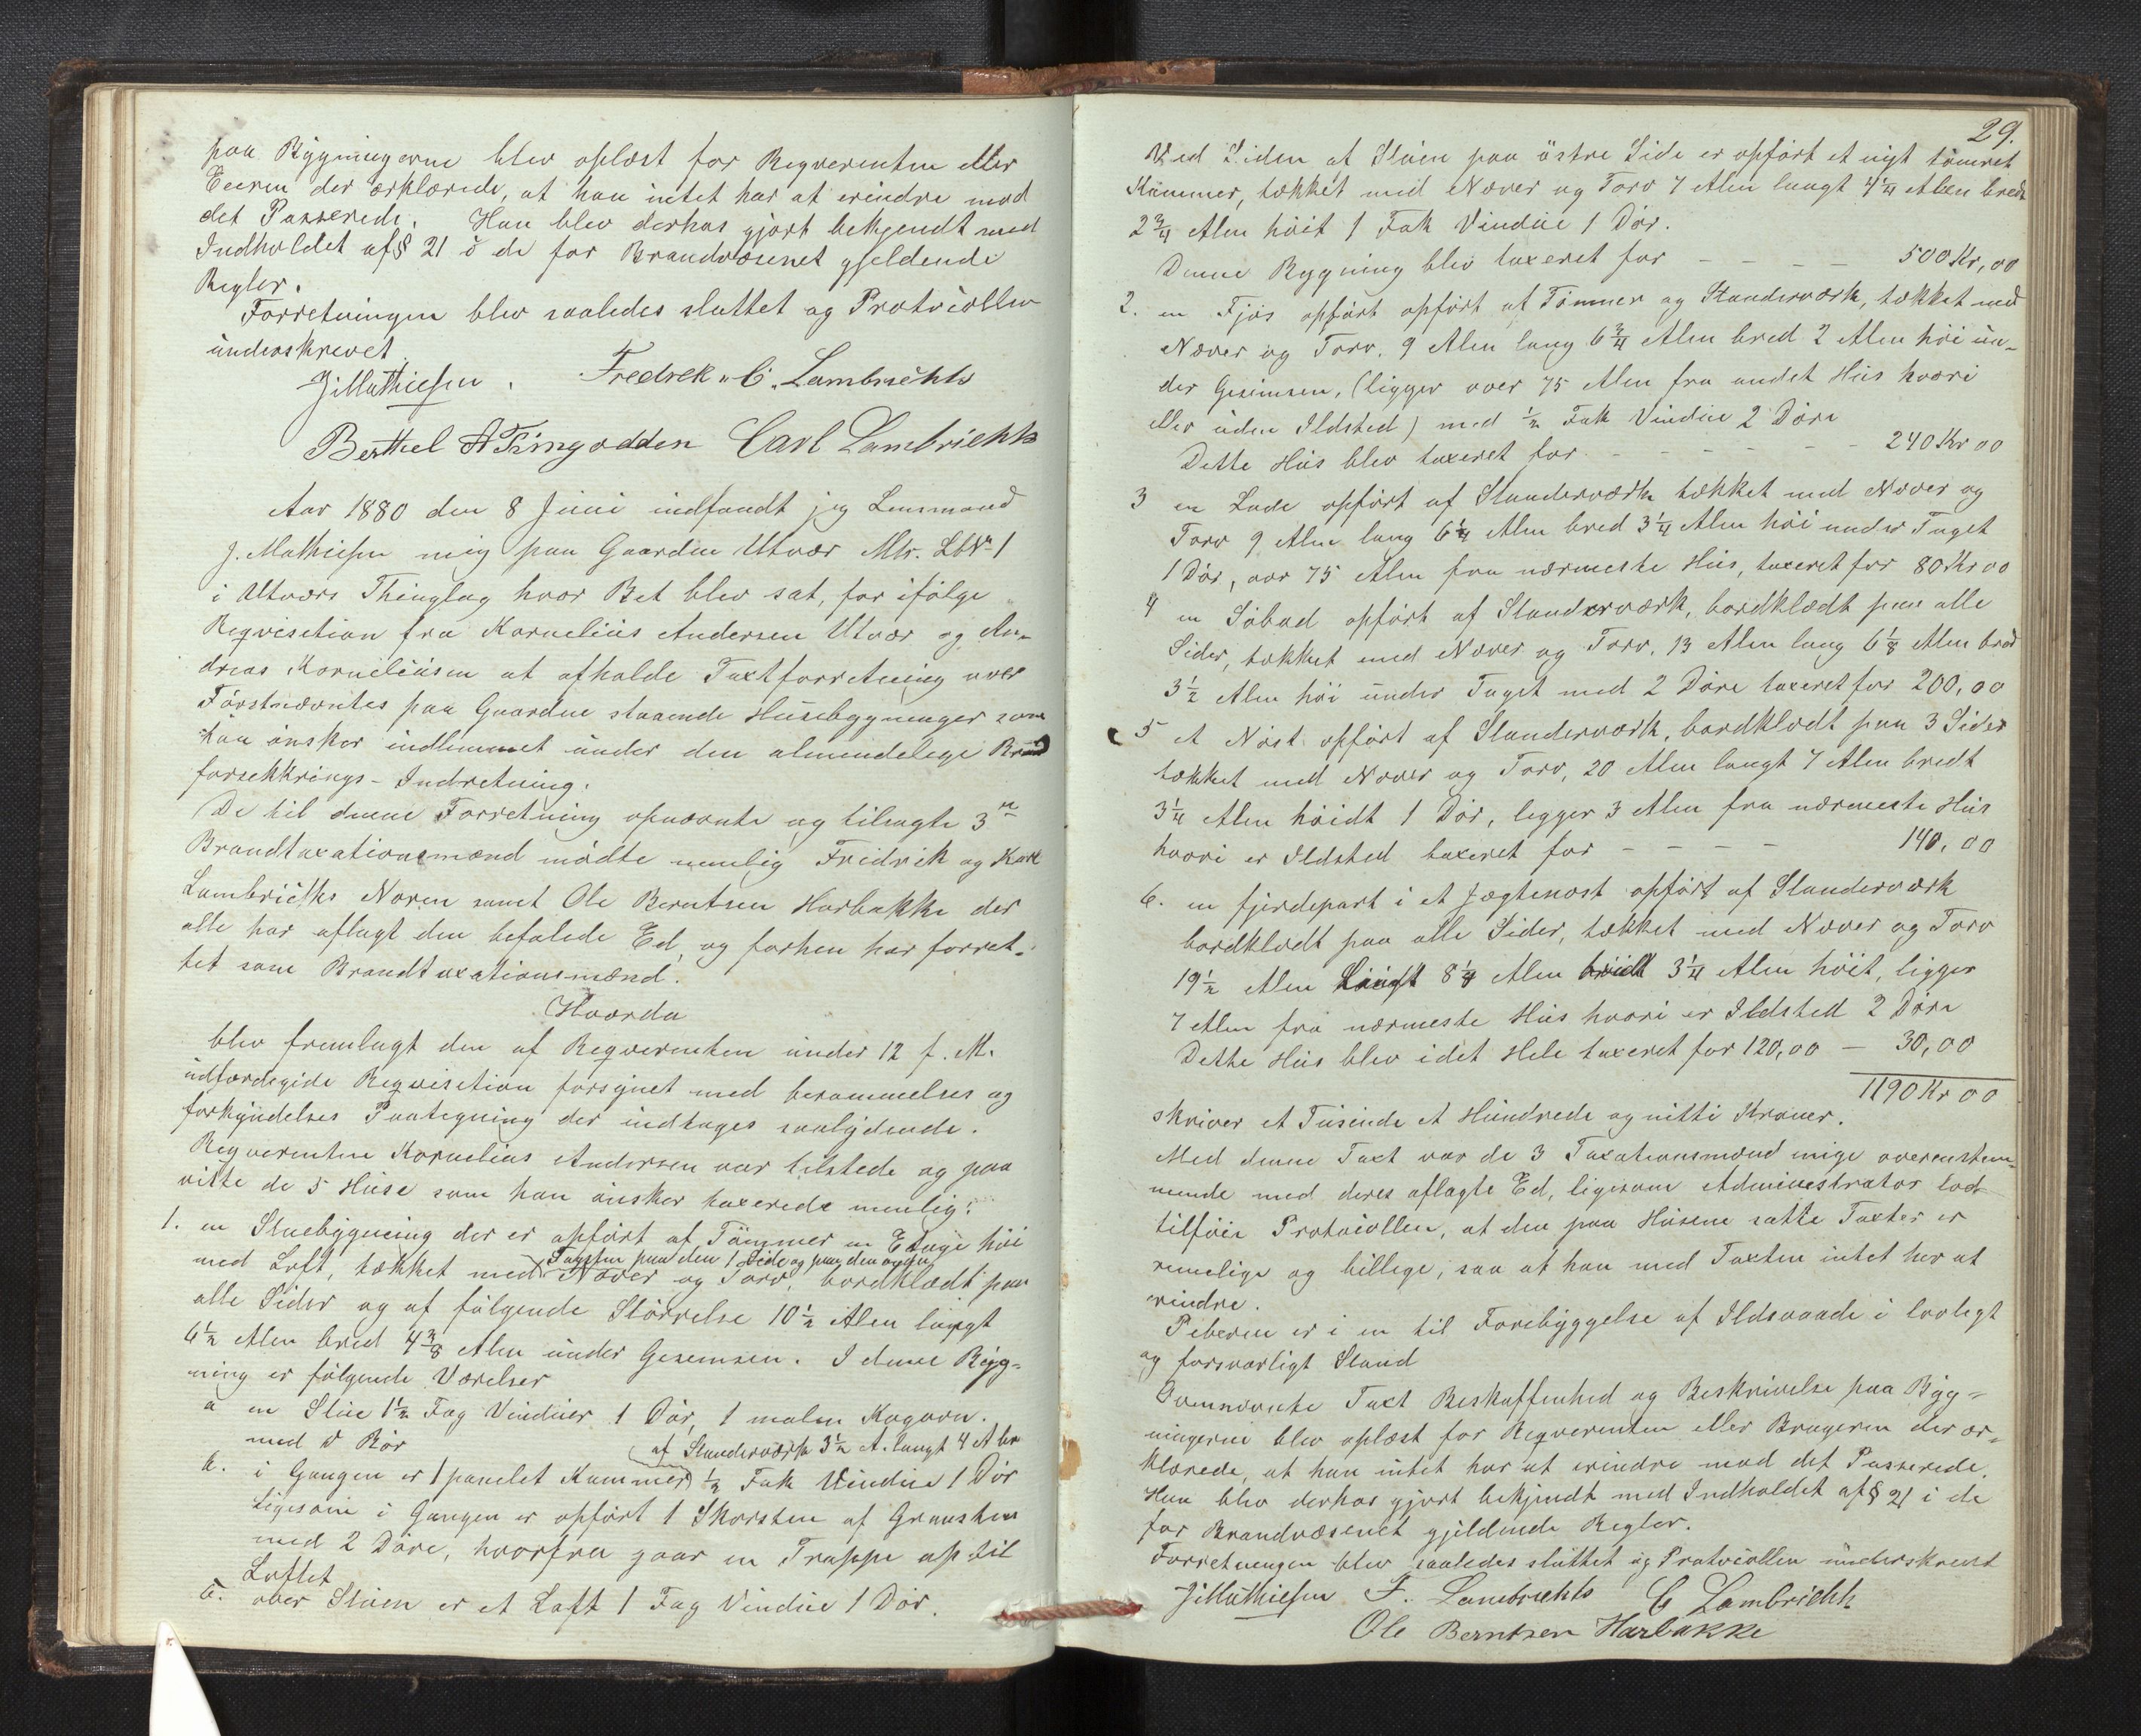 paa Bygningerne blev oplæst for Reqverenten eller
Eeren der ærklærede, at han intet har at erindre mod
det Passerede. Han blev derhos gjort bekjendt med
Indholdet af § 21 i de for Brandvæsenet gjeldende
Regler.
Forretningen blev saaledes sluttet og Protocollen
underskrevet
J Mathiesen. Fredrek C. Lambrichts
Berthel A Tsingodden Carl Lambrichts
Aar 1880 den 8 Juni indfandt jeg Lensmand
J. Mathiesen mig paa Gaarden Utvær Mtr. LNo 1
i Utværs Thinglag hvor Ret blev sat, for ifølge
Reqvisition fra Kornelius Andersen Utvær og An-
dreas Korneliusen at afholde Taxtforretning over
Førstnævntes paa Gaarden staaende Husebygninger som
han ønsker indlemmet under den almindelige Brand
forsekkrings-Indretning.
De til denne Forretning opnævnte og tilsagte 3de
Brandtaxationsmænd mødte nemlig Fridrik og Karl
Lambrichts Noren samt Ole Berntsen Harbakke der
alle har aflagt den befalede Ed, og forhen har forret-
tet som Brandtaxationsmænd.
Hvorda
blev fremlagt den af Reqverenten under 12 f. M.
udfærdigede Reqvisition forsynet med berammelses og
forkyndelses Paategning der indtages saalydende.
Reqverenten Kornelius Andersen var tilstede og paa
viste de 5 Huse som han ønsker taxerede nemlig:
1. en Stuebygning der er opført af Tømmer en Etage høi
Tagsten paa den 1 Side og paa den anden
med Loft, tækket med Næver og Torv, bordklædt paa
alle Sider og af følgende Størrelse 10½ Alen langt
6½ Alen bred 4⅜ Alen under Gesemsen. I denne Byg-
ning er følgende Værelser
a en Stue 1½ Fag Vinduer 1 Dør, 1 malm Kogovn.
med Rør
af Standerværk 3½ A. langt 4 A br
b. i Gangen er 1 panelet Kammer ½ Fak Vindue 1 Dør
ligesom i Gangen er opført 1 Skorsten af Graasten
med 2 Døre, hvorfra gaar en Trappe op til
Loftet
c. over Stuen er et Loft 1 Fag Vindue 1 Dør.
29.
Ved Siden af Stuen paa østre Side er opført et nyt tømret
Kammer, tækket med Næver og Torv 7 Alen langt 4¼ Alen bredt
2¾ Alen høit 1 Fak Vindue 1 Dør.
Denne Bygning blev taxeret for - - - - 500 Kr, 00
2. en Fjøs opført opført af Tømmer og Standerværk, tækket med
Næver og Torv. 9 Alen lang 6¾ Alen bred 2 Alen høi un-
der Gesimsen, (ligger over 75 Alen fra andet Hus hvori
eller uden Ildsted) med ½ Fak Vindue 2 Døre
Dette Hus blev taxeret for - - - - - 240 Kr 00
3 en Lade opført af Standerværk tækket med Næver og
Torv 9 Alen lang 6¼ Alen bred 3¼ Alen høi under Taget
1 Dør, over 75 Alen fra nærmeste Hus, taxeret for 80 Kr 00
4 en Søbod opført af Standerværk, bordklædt paa alle
Sider, tækket med Næver og Torv, 13 Alen lang 6⅛ Alen bred
3½ Alen høi under Taget med 2 Døre taxeret for 200,00
5 et Nøst opført af Standerværk, bordklædt paa 3 Sider
tækket med Næver og Torv, 20 Alen langt 7 Alen bredt
3¼ Alen høidt 1 Dør, legger 3 Alen fra nærmeste Hus
hvori er Ildsted taxeret for - - - - 140,00
6. en fjerdepart i et Jægtenøst opført af Standerværk
bordklædt paa alle Sider, tækket med Næver og Torv
19½ Alen langt 8¼ Alen bredt 3¼ Alen høit, ligger
7 Alen fra nærmeste Hus hvori er Ildsted 2 Døre
Dette Hus blev idet Hele taxeret for 120,00 — 30,00
1190 Kr 00
skriver et Tusende et Hundrede og nitti Kroner.
Med denne Taxt var de 3 Taxationsmænd enige overenstem-
mende med deres aflagte Ed, ligesom Administrator lod
tilføie Protocollen, at den paa Husene satte Taxter er
rimelige og billige, saa at han mod Taxten intet har at
erindre.
Peberen er i en til Forebyggelse af Ildsvaade i lovlegt
og forsvarligt Stand
Ovennævnte Taxt Beskaffenhed og Beskrivelse paa Byg-
ningerne blev oplæst for Reqverenten eller Brugeren der ær-
klærede, at han intet har at erindre mod det Passerede.
Han blev derhos gjort bekjendt med Indholdet af § 21 i de
for Brandvæsenet gjeldende Regler.
Forretningen blev saaledes sluttet og Protocollen underskrevet
J Mathiesen F. Lambrichts C Lambrichts
Ole Berntsen Harbakke